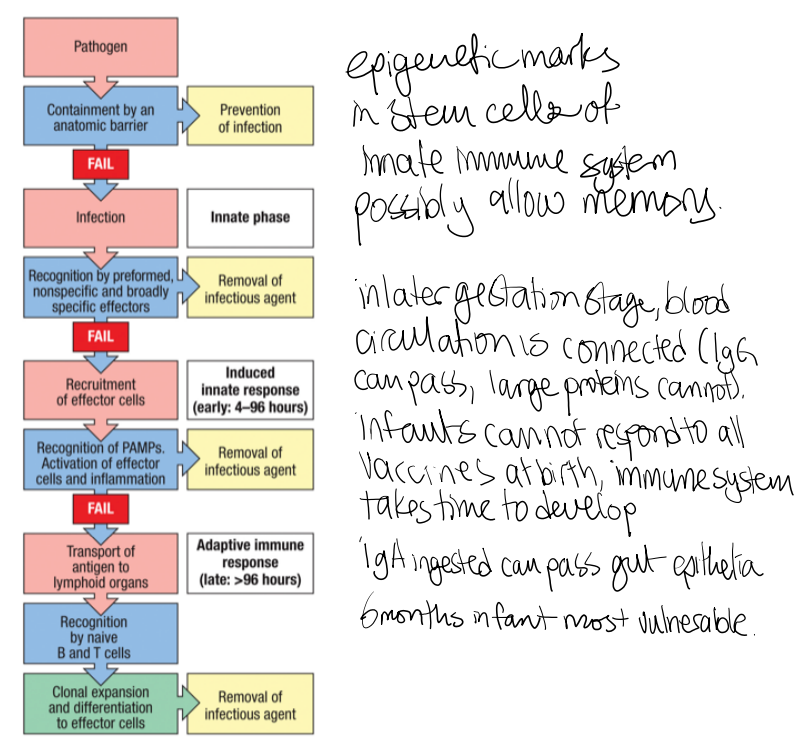 Pathogen
Containment by an
anatomic barrier
Prevention
of infection
FAIL
Infection
Innate phase
Recognition by preformed,
nonspecific and broadly
specific effectors
Removal of
infectious agent
FAIL
Recruitment
of effector cells
Induced
innate response
(early: 4–96 hours)
Recognition of PAMPs.
Activation of effector
cells and inflammation
Removal of
infectious agent
FAIL
Transport of
antigen to
lymphoid organs
Adaptive immune
response
(late: >96 hours)
Recognition
by naive
B and T cells
Clonal expansion
and differentiation
to effector cells
Removal of
infectious agent
epigenetic marks
in stem cells of
innate immune system
possibly allow memory.
in later gestation stage, blood
circulation is connected (IgG
can pass, large proteins cannot).
infants cannot respond to all
vaccines at birth, immune system
takes time to develop
IgA ingested can pass gut epithelia
6 months infant most vulnerable.